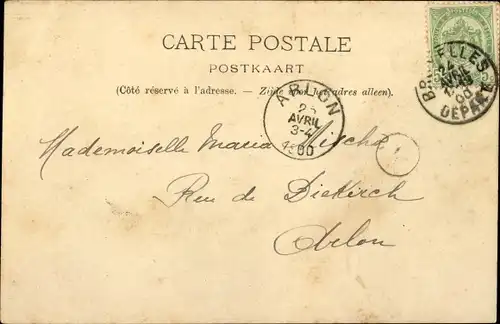 CARTE POSTALE
POSTKAART
(Côté réservé à l'adresse. — Zijde voor het adres alleen).
BRUXELLES 1
DEPART
ARLON
25
AVRIL
3-4
1900
Mademoiselle Maria
Rue de Diekirch
Arlon